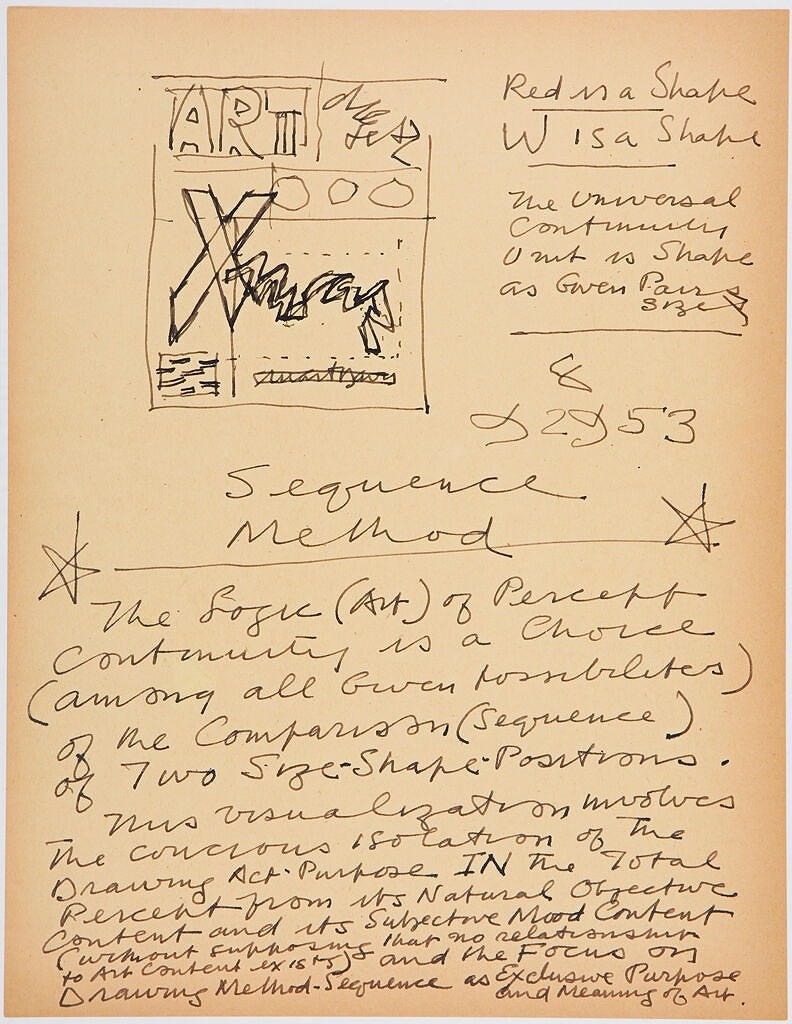 ART
Xmas
Red is a Shape
W is a Shape
The Universal
Continuity
Unit is Shape
as Given Pairs
Size
&
D2D53
Sequence
Method
The Logic (Art) of Percept
Continuity is a Choice
(among all Given possibilites)
of the Comparison (Sequence)
of Two Size-Shape-Positions.
This visualization involves
The concious isolation of The
Drawing Act-Purpose IN the Total
Percept from its Natural Objective
Content and its Subjective Mood Content
(without supposing that no relationship
to Art Content exists) and the Focus on
Drawing Method-Sequence as Exclusive Purpose
and Meaning of Art.